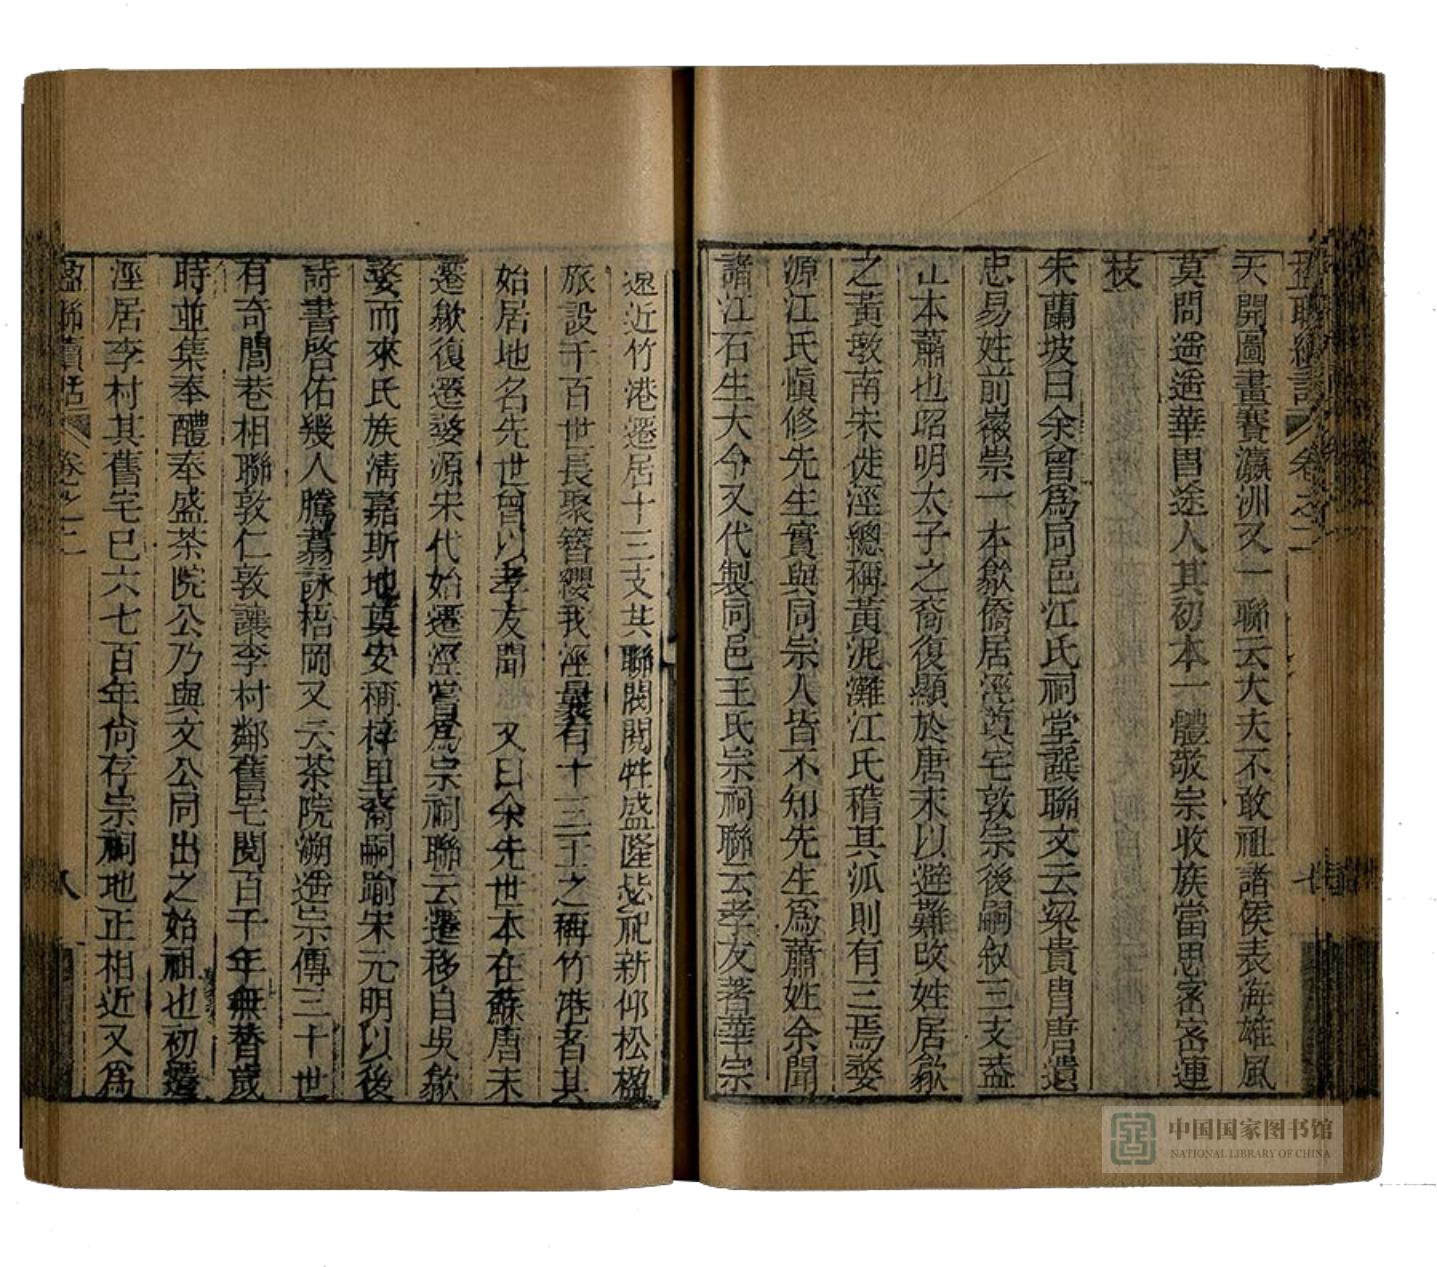 楹聯續話 卷之二 七
天開圖畫賽瀛洲又一聯云大夫不敢祖諸侯表海雄風
莫問遥遥華胄途人其初本一體敬宗收族當思密密連
枝
朱蘭坡曰余曾爲同邑江氏祠堂譔聯文云梁貴胄唐遺
忠易姓前徽崇一本歙僑居涇奠宅敦宗後嗣叙三支葢
江本蕭也昭明太子之裔復顯於唐末以避難改姓居歙
之黃墩南宋徙涇總稱黃泥灘江氏稽其泒則有三焉婺
源江氏愼修先生實與同宗人皆不知先生爲蕭姓余聞
諸江石生大令又代製同邑王氏宗祠聯云孝友著華宗
遠近竹港遷居十三支其聯閥閱牲盛隆毖祀新仰松楹
旅設千百世長聚簪纓我涇最有十三王之稱竹港者其
始居地名先世曾以孝友聞 又曰余先世本在蘇唐末
遷歙復遷婺源宋代始遷涇嘗爲宗祠聯云遷移自吳歙
婺而來氏族清嘉斯地奠安稱梓里裔嗣踰宋元明以後
詩書啓佑幾人騰翥詠梧岡又云茶院溯遥宗傳三十世
有奇閭巷相聯敦仁敦讓李村鄰舊宅閱百千年無替歲
時並集奉醴奉盛茶院公乃與文公同出之始祖也初遷
涇居李村其舊宅已六七百年尚存宗祠地正相近又爲
楹聯續話 卷之二 八
中国国家图书馆
NATIONAL LIBRARY OF CHINA